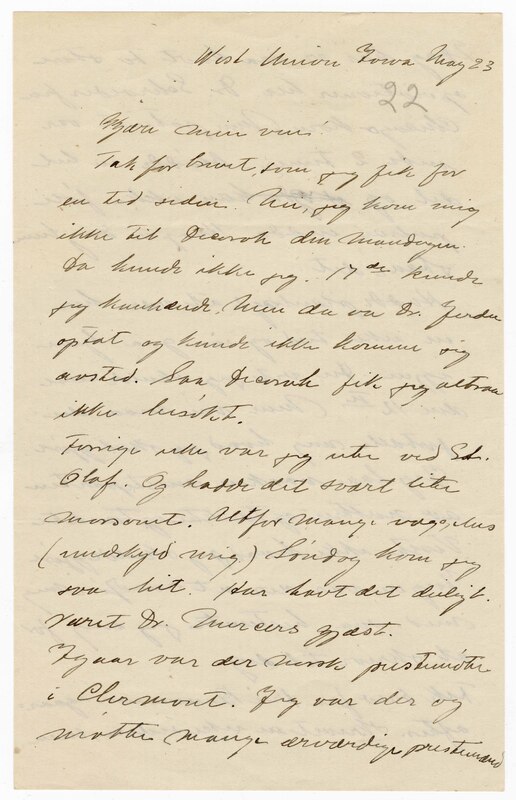 West Union Iowa May 23
22
Kjære min ven!
Tak for brevet, som jeg fik for
en tid siden. Nei, jeg kom mig
ikke til Decorah den mandagen.
Da kunde ikke jeg. 17de kunde
jeg kanhænde, men da va Dr. Jordan
optat og kunde ikke komme sig
avsted. Saa Decorah fik jeg altsaa
ikke besøkt.
Forrige uke var jeg ute ved St.
Olaf. Og hadde det svært lite
morsomt. Altfor mange
(undskyld mig) Søndag kom jeg
saa hit. Har havt det deiligt.
Været Dr. Mercers gjæst.
Igaar var der norsk prestemöte
i Clermont. Jeg var der og
mötte mange ærværdige prestemænd